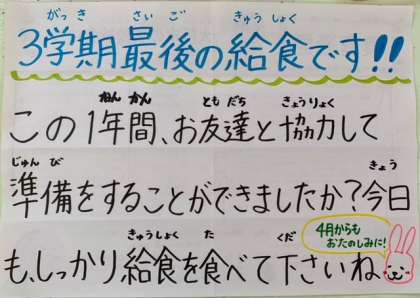 がっき さいご きゅうしょく
3学期最後の給食です!!
ねんかん ともだち きょうりょく
この1年間、お友達と協力して
じゅんび きょう
準備をすることができましたか?今日
きゅうしょく た くだ
も、しっかり給食を食べて下さいね
4月からも
おたのしみに!